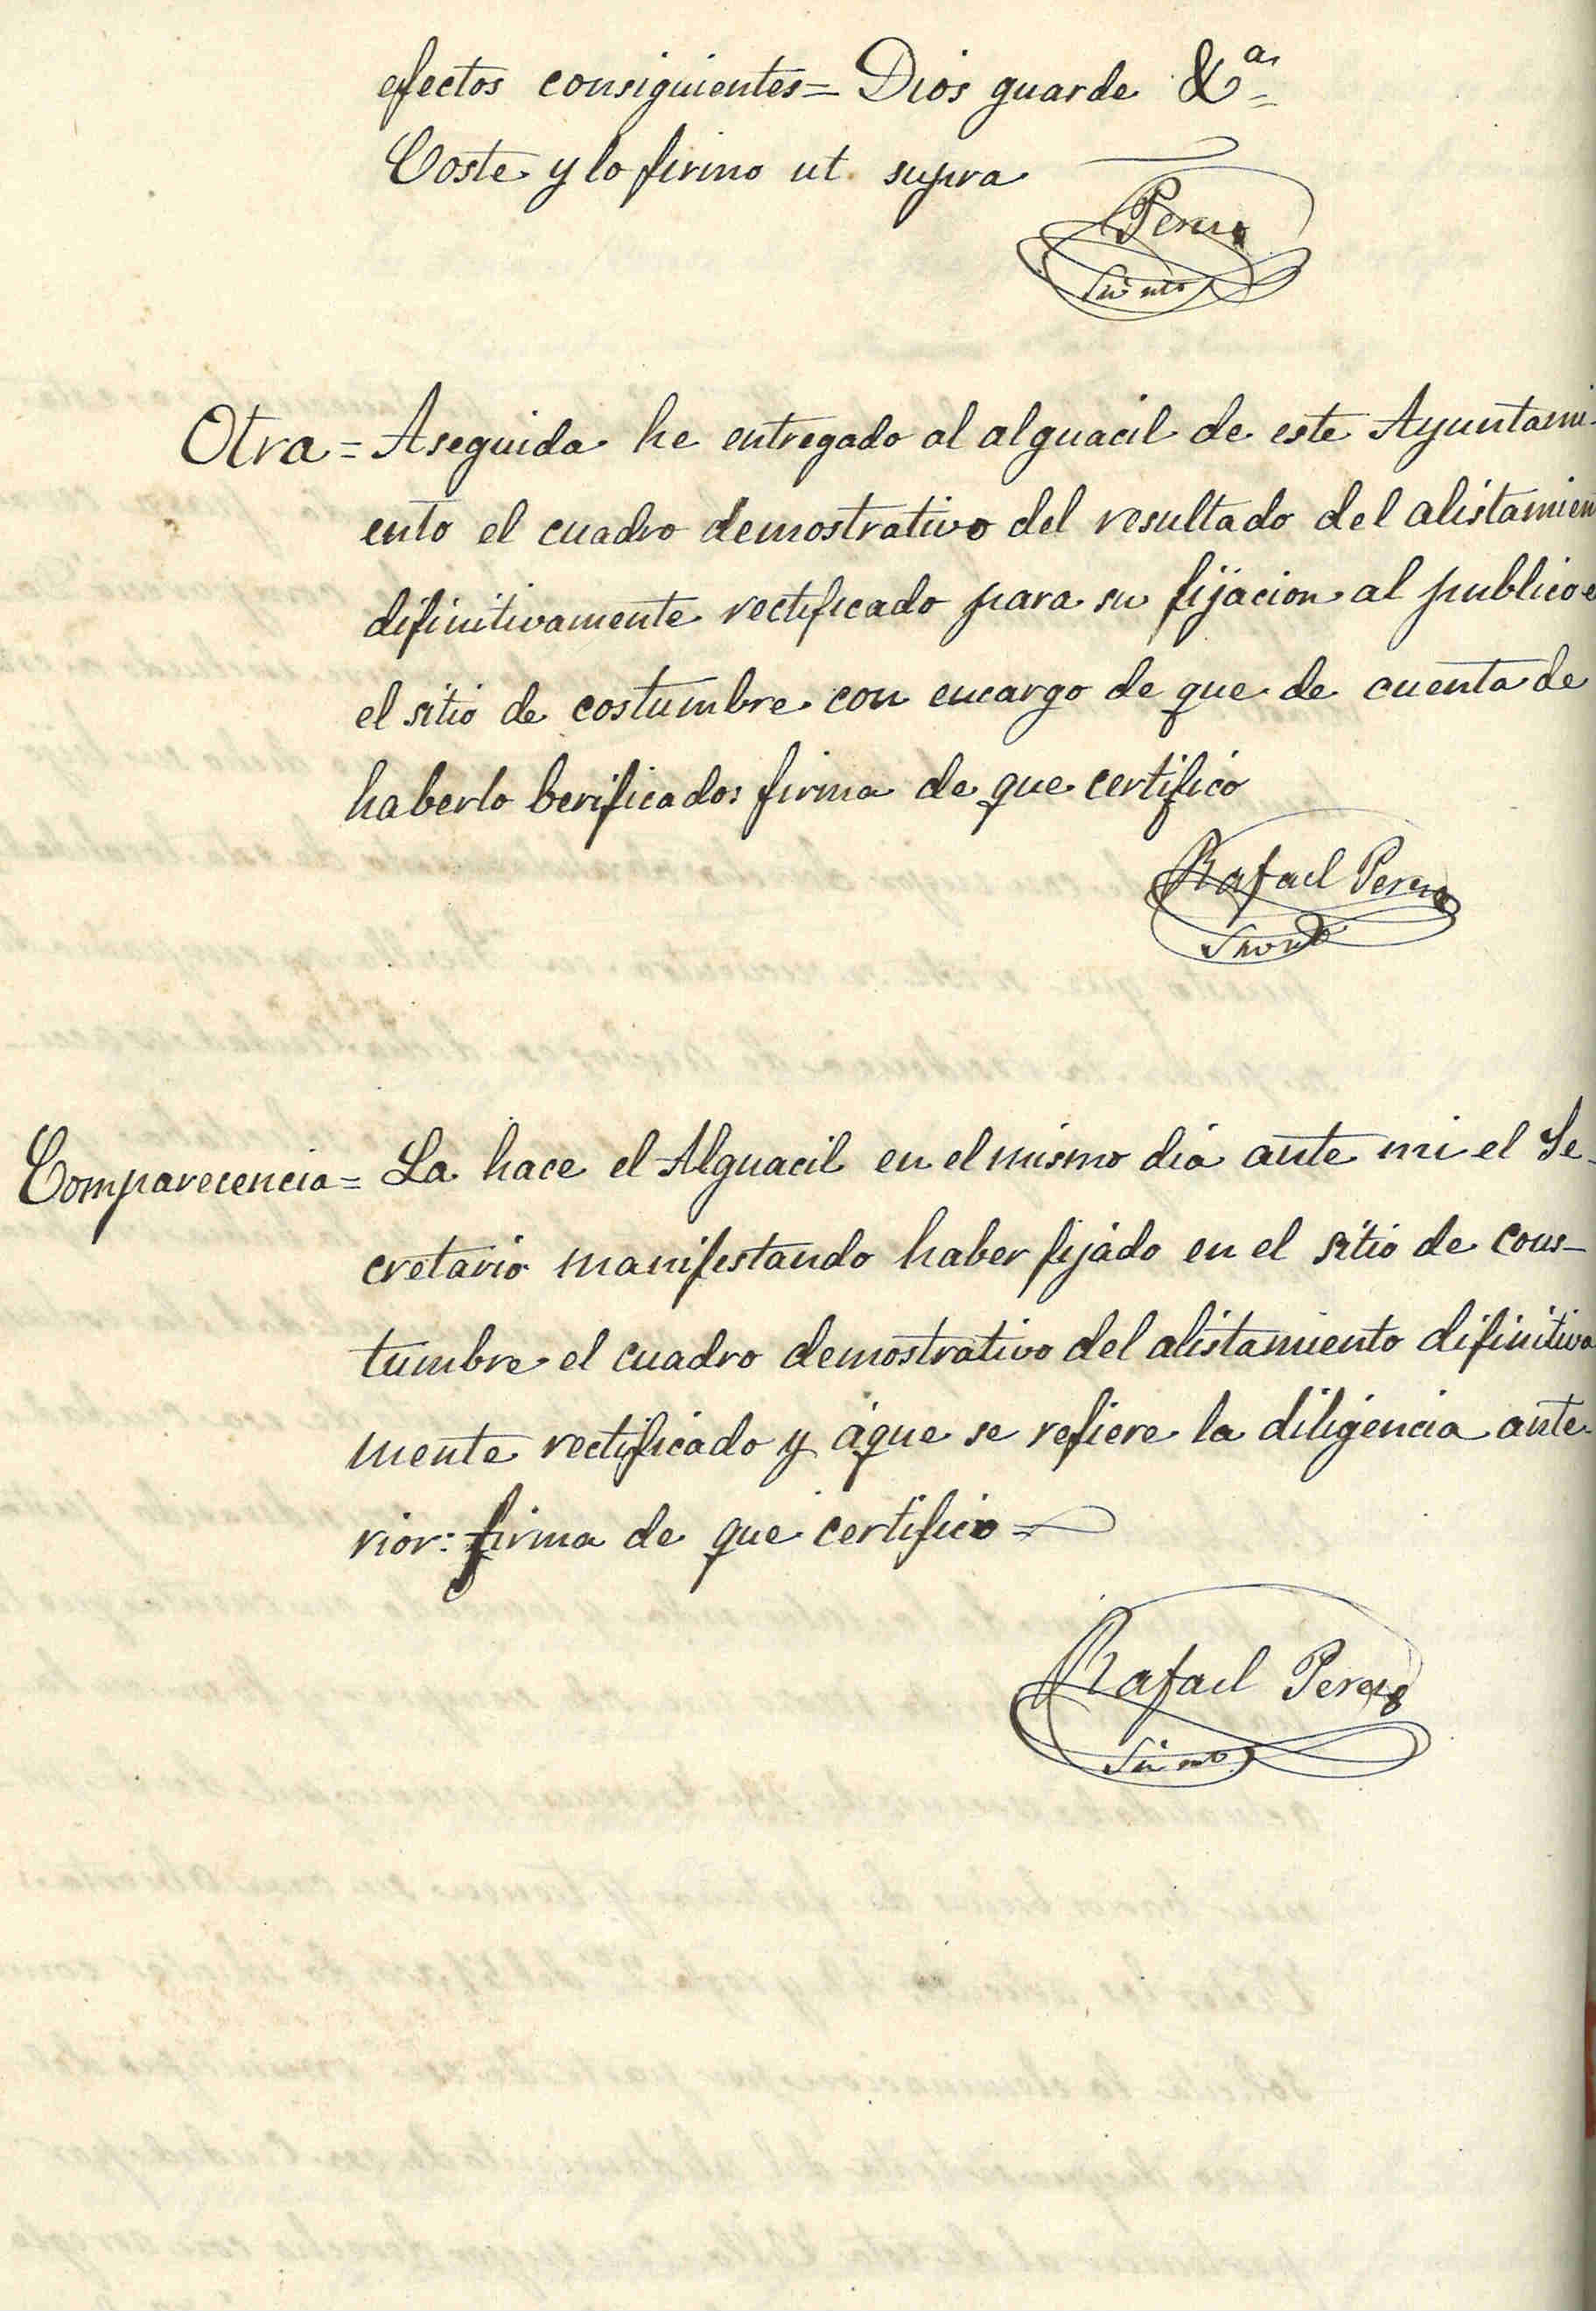 efectos consiguientes = Dios guarde &ª =
Coste y lo firmo ut supra
Otra = Aseguida he entregado al alguacil de este Ayuntami-
ento el cuadro demostrativo del resultado del alistamien
difinitivamente rectificado para su fijacion al publico e
el sitio de costumbre con encargo de que de cuenta de
haberlo berificado: firma de que certifico
Rafael
Comparecencia = La hace el Alguacil en el mismo dia ante mi el Se-
cretario manifestando haber fijado en el sitio de cons-
tumbre el cuadro demostrativo del alistamiento difinitiva
mente rectificado y áque se refiere la diligencia ante-
rior: firma de que certifico =
Rafael